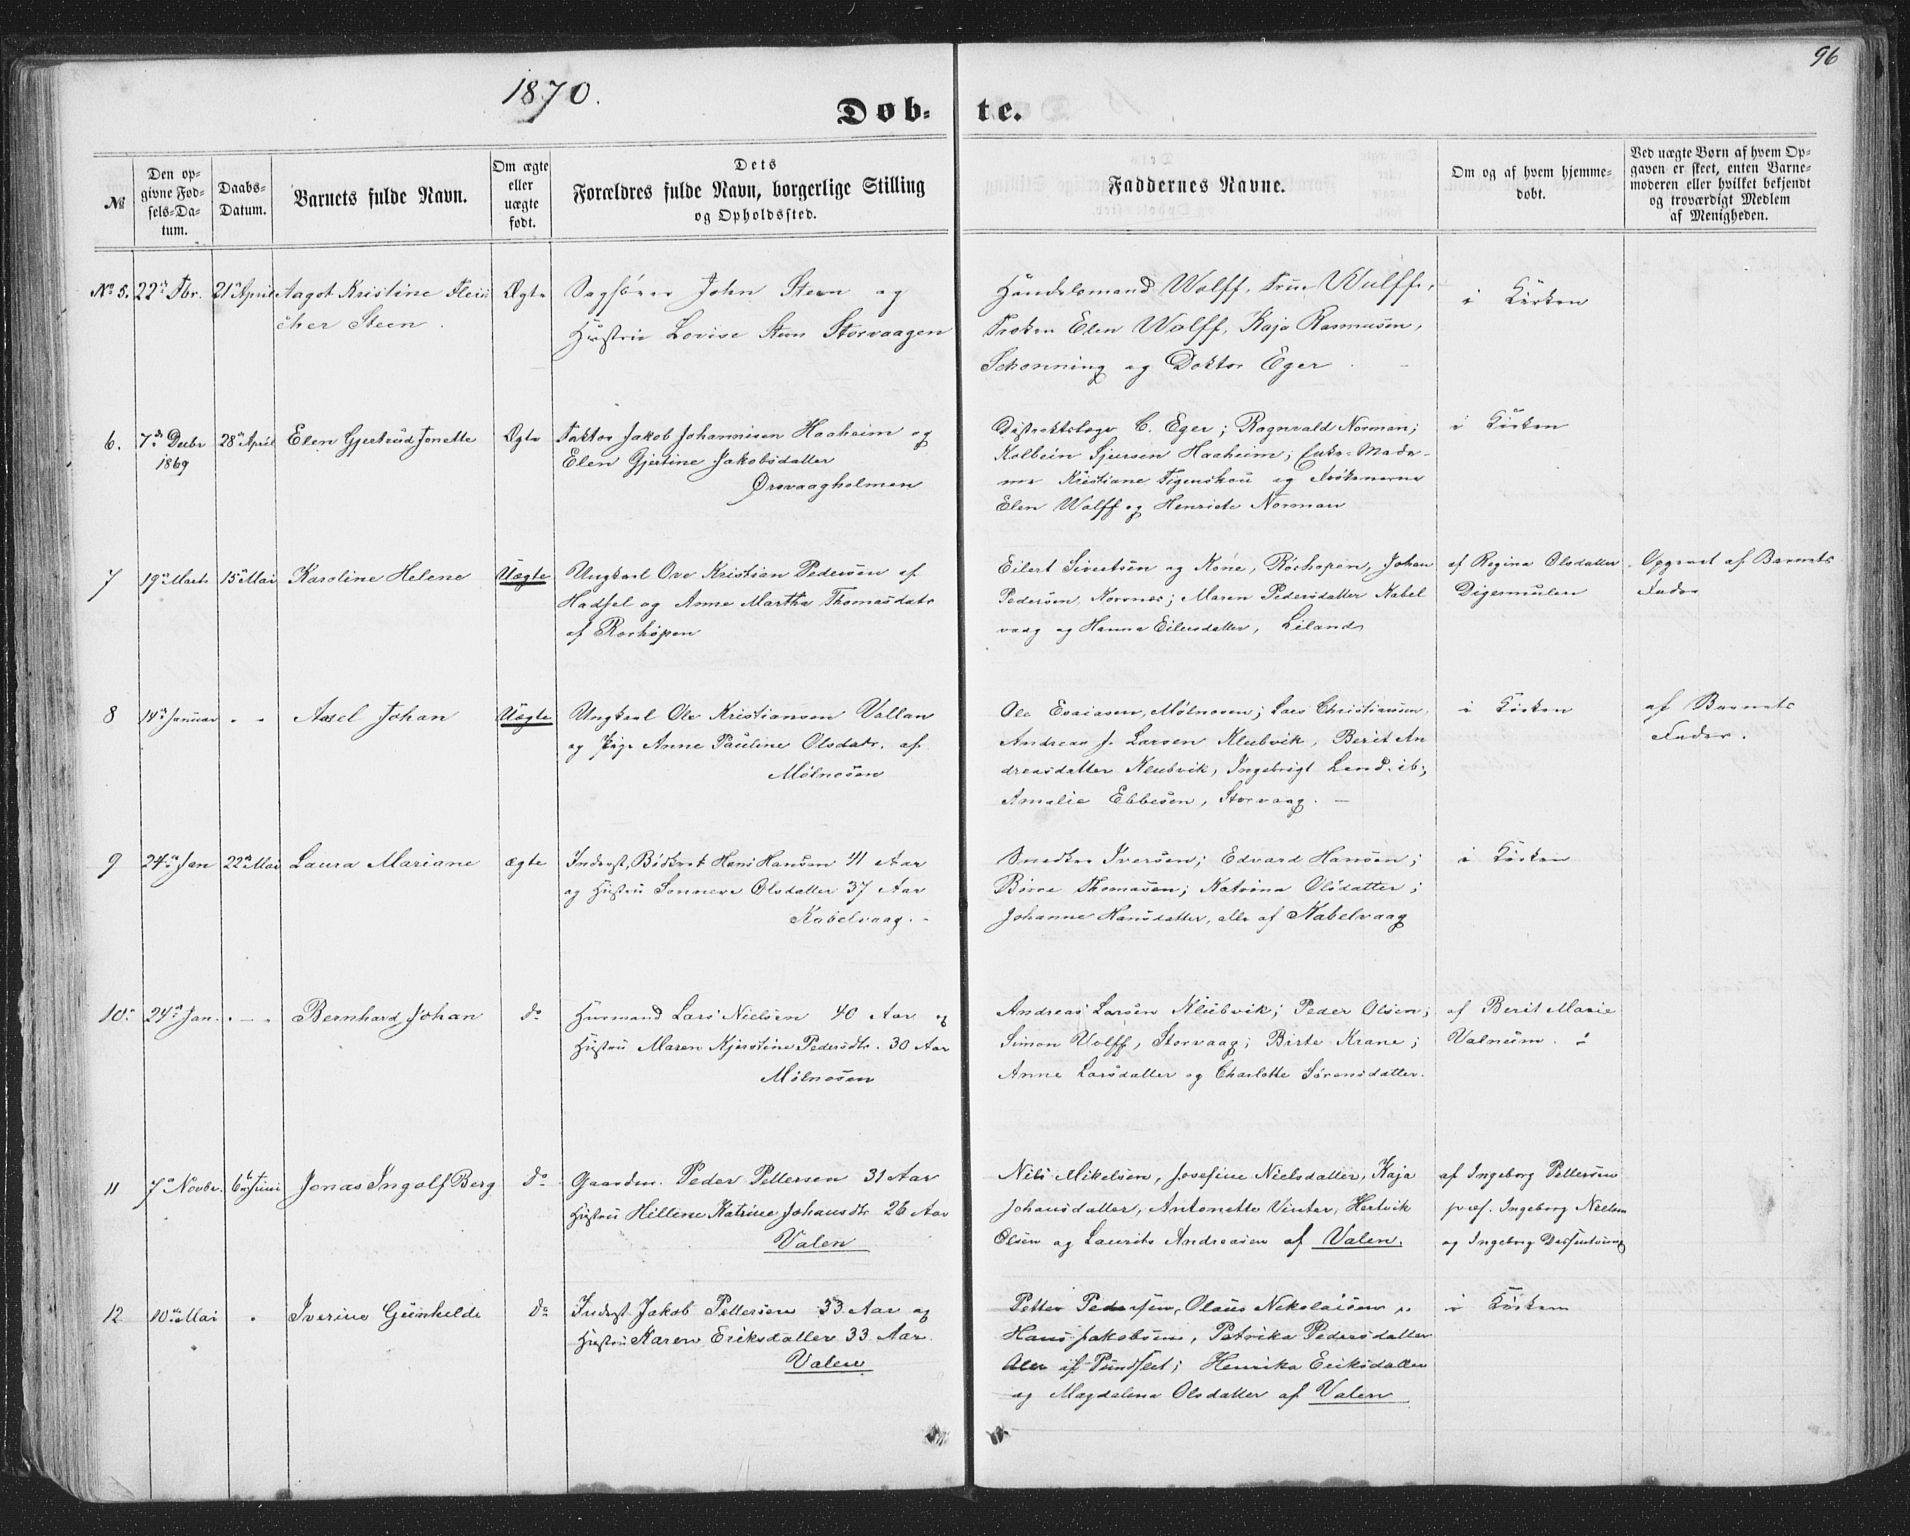 96
1870.
Døb-te.
№
Den op-
givne Fød-
sels-Da-
tum.
Daabs-
Datum.
Barnets fulde Navn.
Om ægte
eller
uægte
født.
Dets
Forældres fulde Navn, borgerlige Stilling
og Opholdssted.
Faddernes Navne.
Om og af hvem hjemme-
døbt.
Ved uægte Børn af hvem Op-
gaven er skeet, enten Barne-
moderen eller hvilket bekjendt
og troværdigt Medlem
af Menigheden.
No 5. 22de Fbr. 21de April Aagot Kristine Fleis
cher Steen.
Ægte
Sagfører John Steen og
Hustru Lovise Steen Storvaagen
Handelsmand Wolff, Frue Wulff,
Frøken Elen Wolff, Kaja Rasmusen,
Schønning og Doktor Eger.
i Kirken
6. 7de Decbr 28de April Elen Gjertrud Jonette
1869
Ægte
Faktor Jakob Johannisen Haaheim og
Elen Gjertine Jakobsdatter
Ørsvaagholmen
Distriktslæge C. Eger; Ragnvald Norman;
Kolbein Sjursen Haaheim; Enke-Mada-
me Kristiane Figenskou og Frøknerne
Elen Wolff og Henriete Norman
i Kirken
7 19de Marts 15de Mai Karoline Helene
Uægte
Ungkarl Ove Kristian Pedersen af
Hadsel og Anne Martha Thomasdatr
af Rørhopen
Eilert Sivertsen og Kone, Rørhopen, Johan
Pedersen, Korsnes; Maren Pedersdatter Kabel
vaag og Hanna Eilersdatter, Liland
af Regina Olsdatter
Digermulen
Opgivet af Barnets
Fader
8 14de Januar - - Axel Johan
Uægte
Ungkarl Ole Kristiansen Vallan
og Pige Anne Pauline Olsdatr. af
Mølnosen
Ole Esaiasen, Mølnosen; Lars Christiansen,
Andreas J. Larsen Klubvik, Berit An
dreasdatter Klubvik, Ingebrigt Lend. ib;
Amalie Ebbesen, Storvaag. -
i Kirken
af Barnets
Fader.
9 24de Jan 22de Mai Laura Mariane
ægte
Inderst, Bødker Hans Hansen 41 Aar
og Hustru Sonneve Olsdatter 37 Aar
Kabelvaag. -
Snedker Iversen; Edvard Hansen;
Børre Thomasen; Katrina Olsdatter;
Johanne Hansdatter, alle af Kabelvaag
i Kirken
10. 24de Jan. - - - Bernhard Johan
do
Huusmand Lars Nielsen 40 Aar og
Hustru Maren Kjerstine Pedersdtr. 30 Aar
Mølnosen
Andreas Larsen Klubvik; Peder Olsen;
Simon Wolff, Storvaag; Birte Krane;
Anne Larsdatter og Charlotte Sørensdatter.
af Berit Marie
Valnum.
11 7de Novbr. 6te Juni Jonas Ingolf Berg
do
Gaardm. Peder Pettersen 31 Aar
Hustru Hillene Katrine Johansdtr. 26 Aar
Valen
Nils Mikelsen, Josefine Nielsdatter, Kaja
Johansdatter, Antonette Vinter, Hertvik
Olsen og Laurits Andreasen af Valen.
af Ingeborg Pettersen
præs. Ingeborg Nielsen
og Ingeborg
12 10de Mai - Iverine Gunhilde
do
Inderst Jakob Pettersen 33 Aar og
Hustru Karen Eriksdatter 33 Aar.
Valen
Petter Pedersen, Olaus Nikolaisen,
Hans Jakobsen, Petrika Pedersdatter
Alle af Pundslet; Henrika Eriksdatter
og Magdalena Olsdatter af Valen
i Kirken